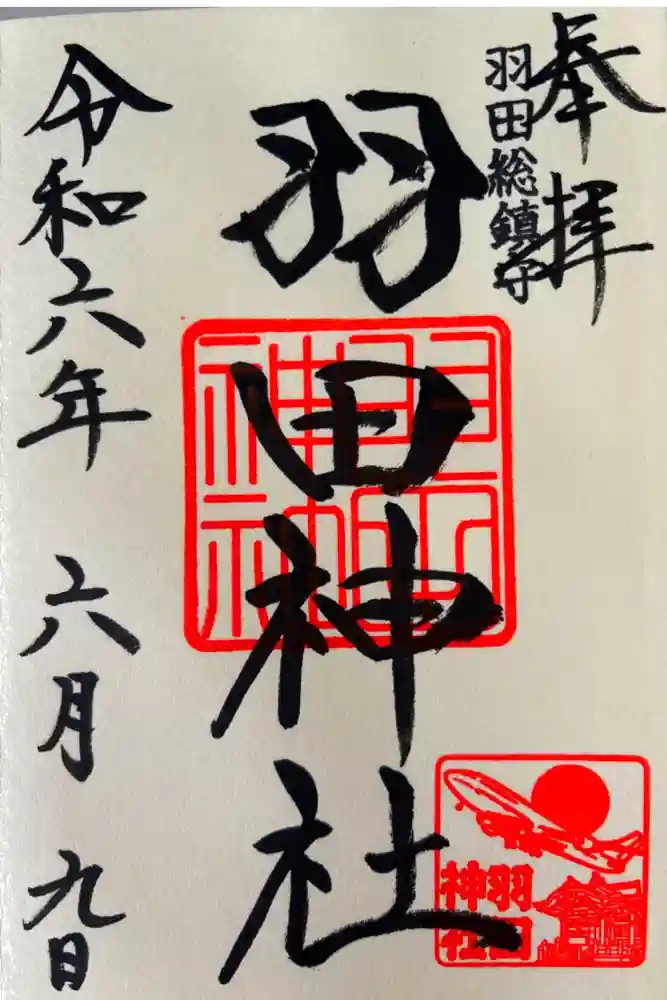 奉拝
羽田総鎮守
羽田神社
令和六年 六月 九日
羽田
神社